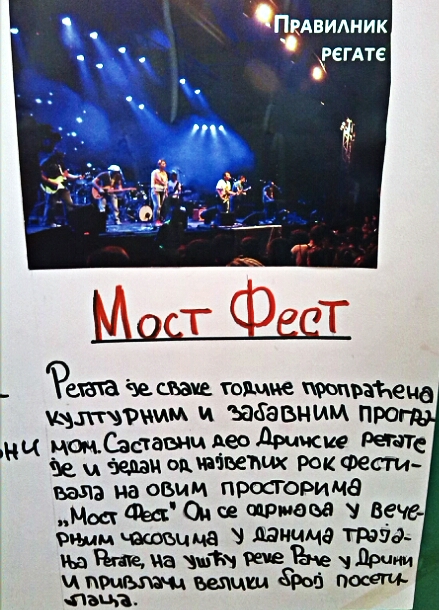 Правилник
регате
Мост Фест
Регата је сваке године пропраћена
културним и забавним програ
мом. Саставни део Дринске регате
ни је и један од највећих рок фести-
вала на овим просторима
„Мост Фест" Он се одржава у вече-
рњим часовима у данима траја-
ња Регате, на ушћу реке Раче у Дрини
и привлачи велики број посети-
лаца.